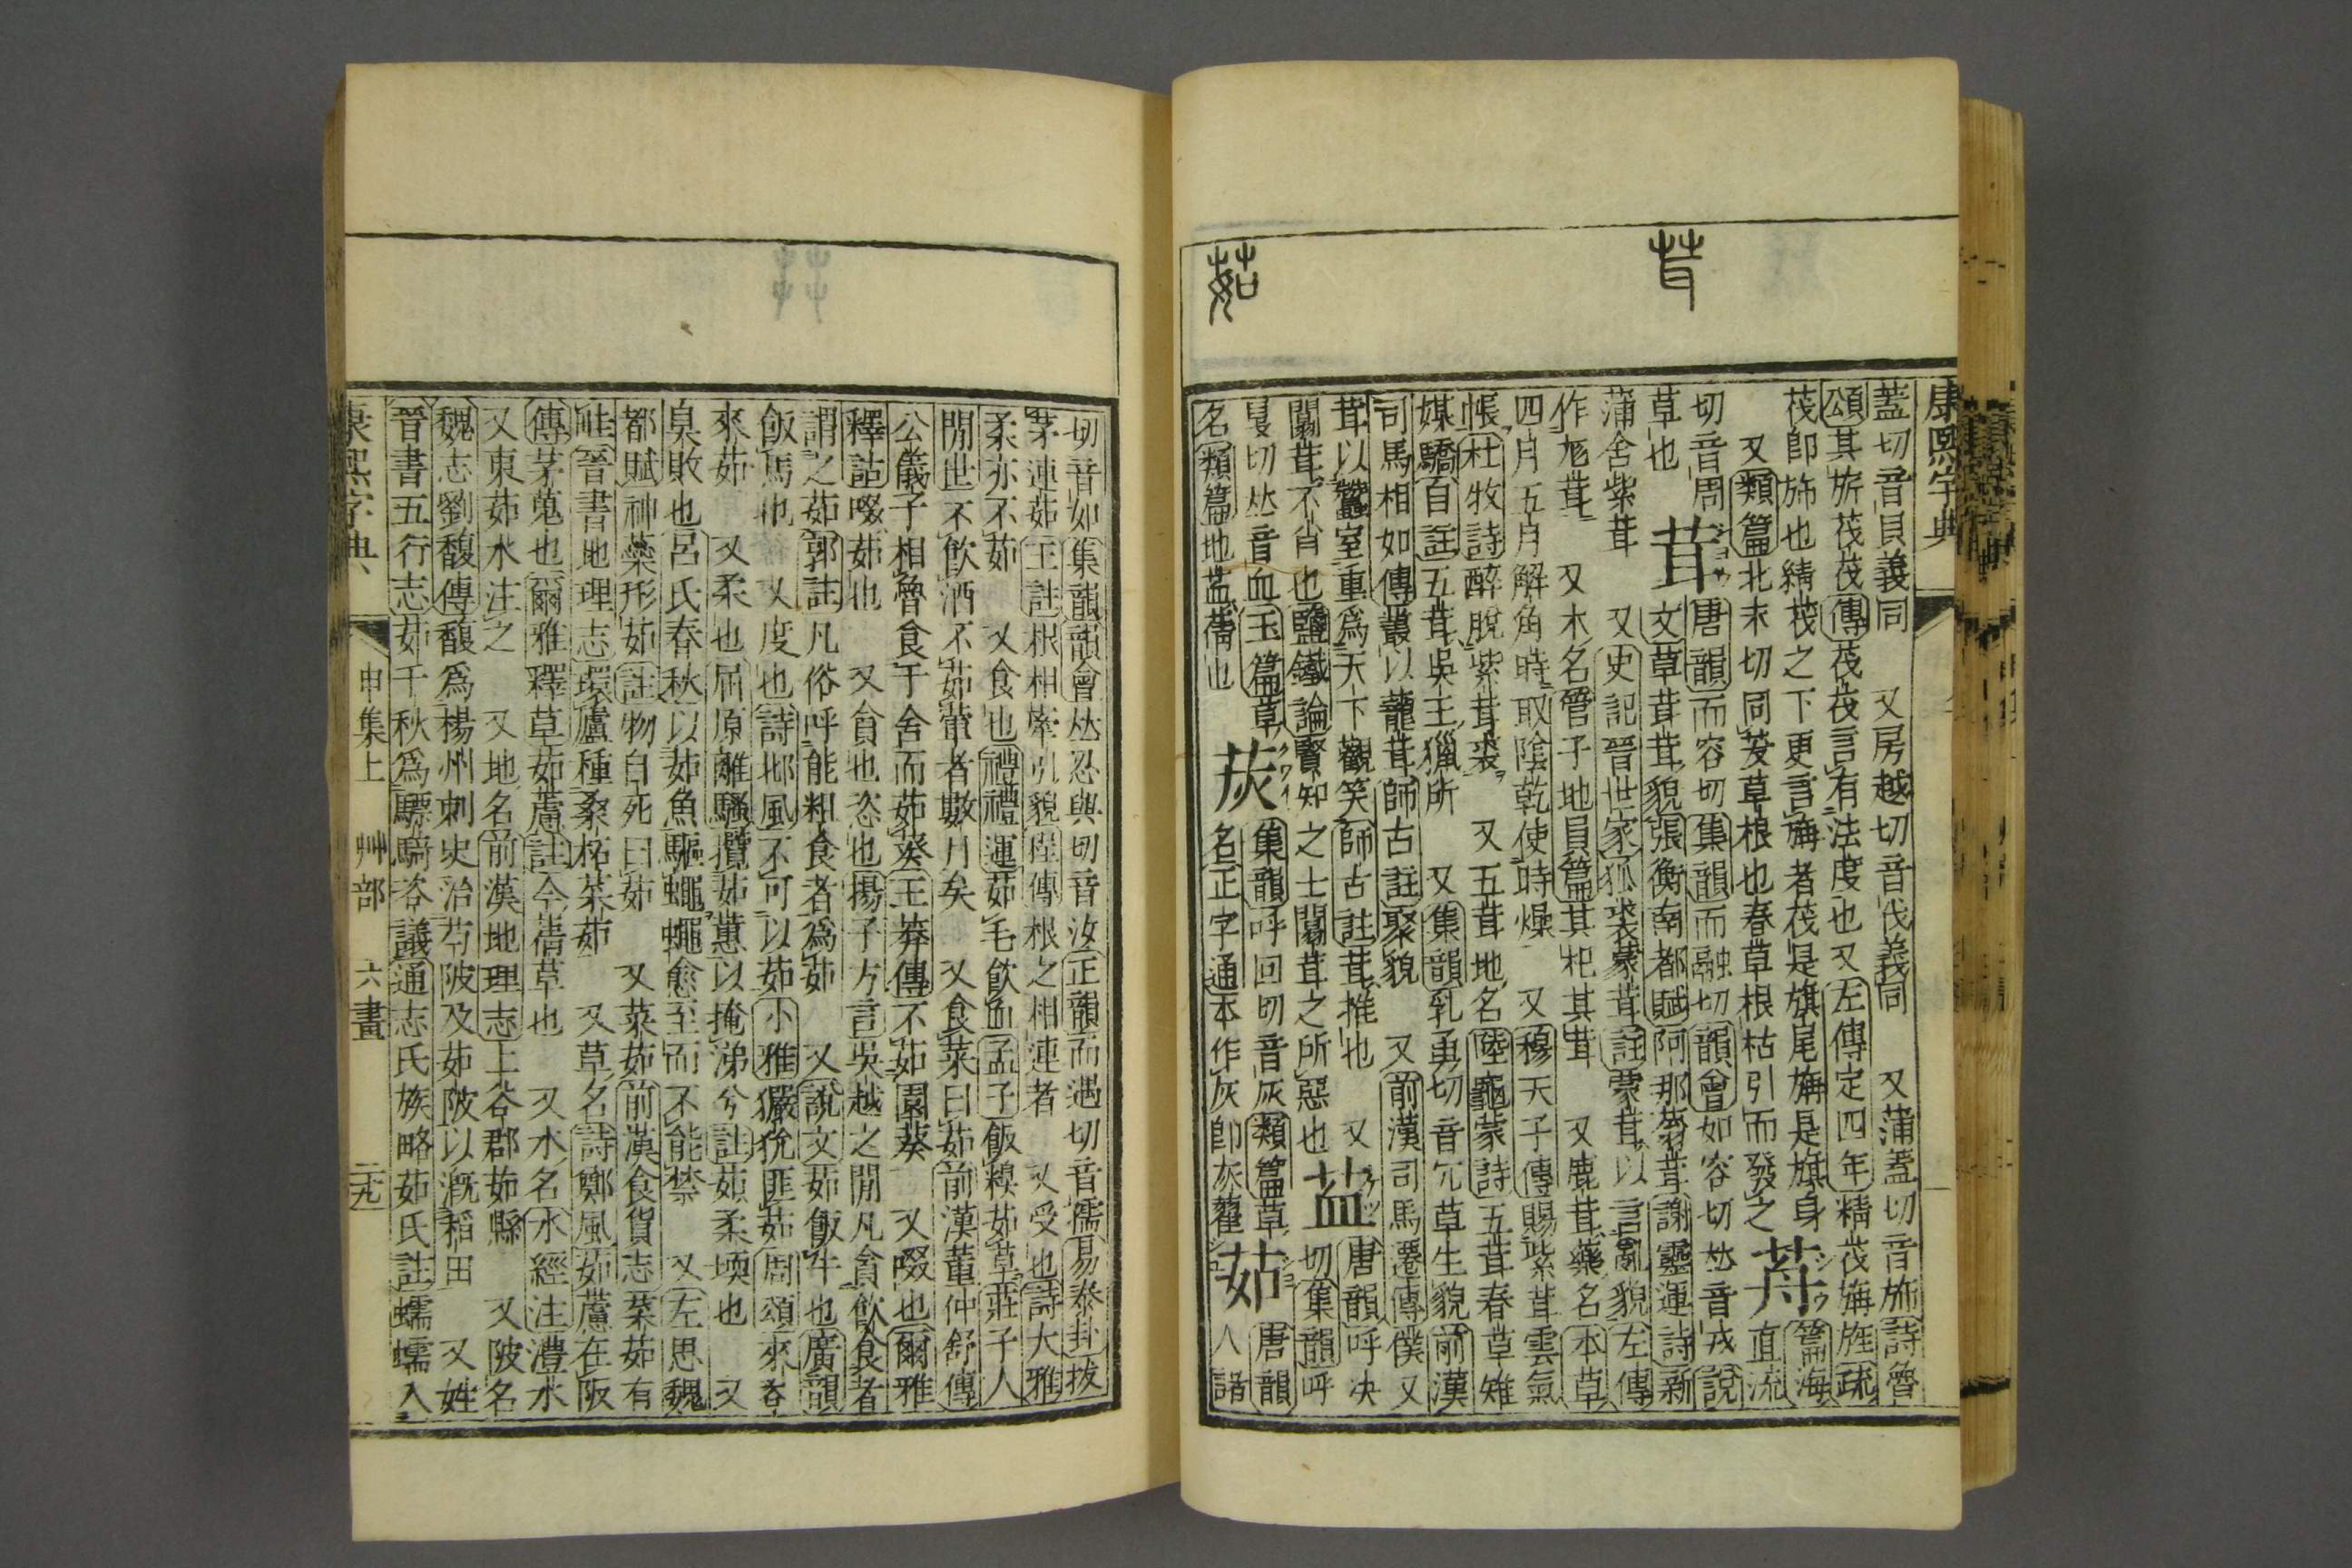 康熙字典
蓋切音貝義同　又房越切音伐義同　又蒲蓋切音旆詩魯
頌其旂茷茷傳茷茷言有法度也又左傳定四年精茷旃旌疏
茷卽旆也綪茷之下更言旃者茷是旗尾旃是旗身
又類篇北末切同茇草根也春草根枯引而發之
シウ
篇海
直流
切音周
草也
茸
唐韻而容切集韻而融切韻會如容切𠀤音戎說
文草茸茸貌張衡南都賦阿那蓊茸謝靈運詩新
蒲含紫茸　又史記晉世家狐裘蒙茸註蒙茸以言亂貌左傳
作尨茸　又木名管子地員篇其杞其茸　又鹿茸藥名本草
四月五月解角時取陰乾使時燥　又穆天子傳賜紫茸雲氣
帳杜牧詩醉脫紫茸裘　又五茸地名陸龜蒙詩五茸春草雉
媒驕自註五茸吳王獵所　又集韻乳勇切音宂草生貌前漢
司馬相如傳叢以蘢茸師古註聚貌　又前漢司馬遷傳僕又
茸以蠶室重爲天下觀笑師古註茸推也　又
闒茸不肖也鹽鐵論賢知之士闒茸之所惡也
唐韻呼決
切集韻呼
切𠀤音血玉篇草
名類篇地
也
集韻呼回切音灰類篇草
名正字通本作灰卽灰藋
茹
唐韻
人諸
切音如集韻韻會𠀤忍與切音汝正韻而遇切音孺易泰卦拔
茅連茹王註根相牽引貌程傳根之相連者　又受也詩大雅
柔亦不茹　又食也禮禮運茹毛飮血孟子飯糗茹草莊子人
閒世不飮酒不茹葷者數月矣　又食菜曰茹前漢董仲舒傳
公儀子相魯食于舍而茹葵王莽傳不茹園葵　又啜也爾雅
釋詁啜茹也　又貪也恣也揚子方言吳越之閒凡貪飮食者
謂之茹郭註凡俗呼能粗食者爲茹　又說文茹飯牛也廣韻
飯馬也　又度也詩邶風不可以茹小雅玁狁匪茹周頌來咨
來茹　又柔也屈原離騷攬茹蕙以掩涕兮註茹柔耎也　又
臭敗也呂氏春秋以茹魚驅蠅蠅愈至而不能禁　又左思魏
都賦神蘂形茹註物自死曰茹　又菜茹前漢食貨志菜茹有
畦晉書地理志環廬種桑柘菜茹　又草名詩鄭風茹藘在阪
傳茅蒐也爾雅釋草茹藘註今蒨草也　又水名水經注澧水
又東茹水注之　又地名前漢地理志上谷郡茹縣　又陂名
魏志劉馥傳馥爲楊州刺史治芍陂及茹陂以漑稻田　又姓
晉書五行志茹千秋爲驃騎咨議通志氏族略茹氏註蠕蠕入
康熙字典　申集上　艸部　六畫　二十九